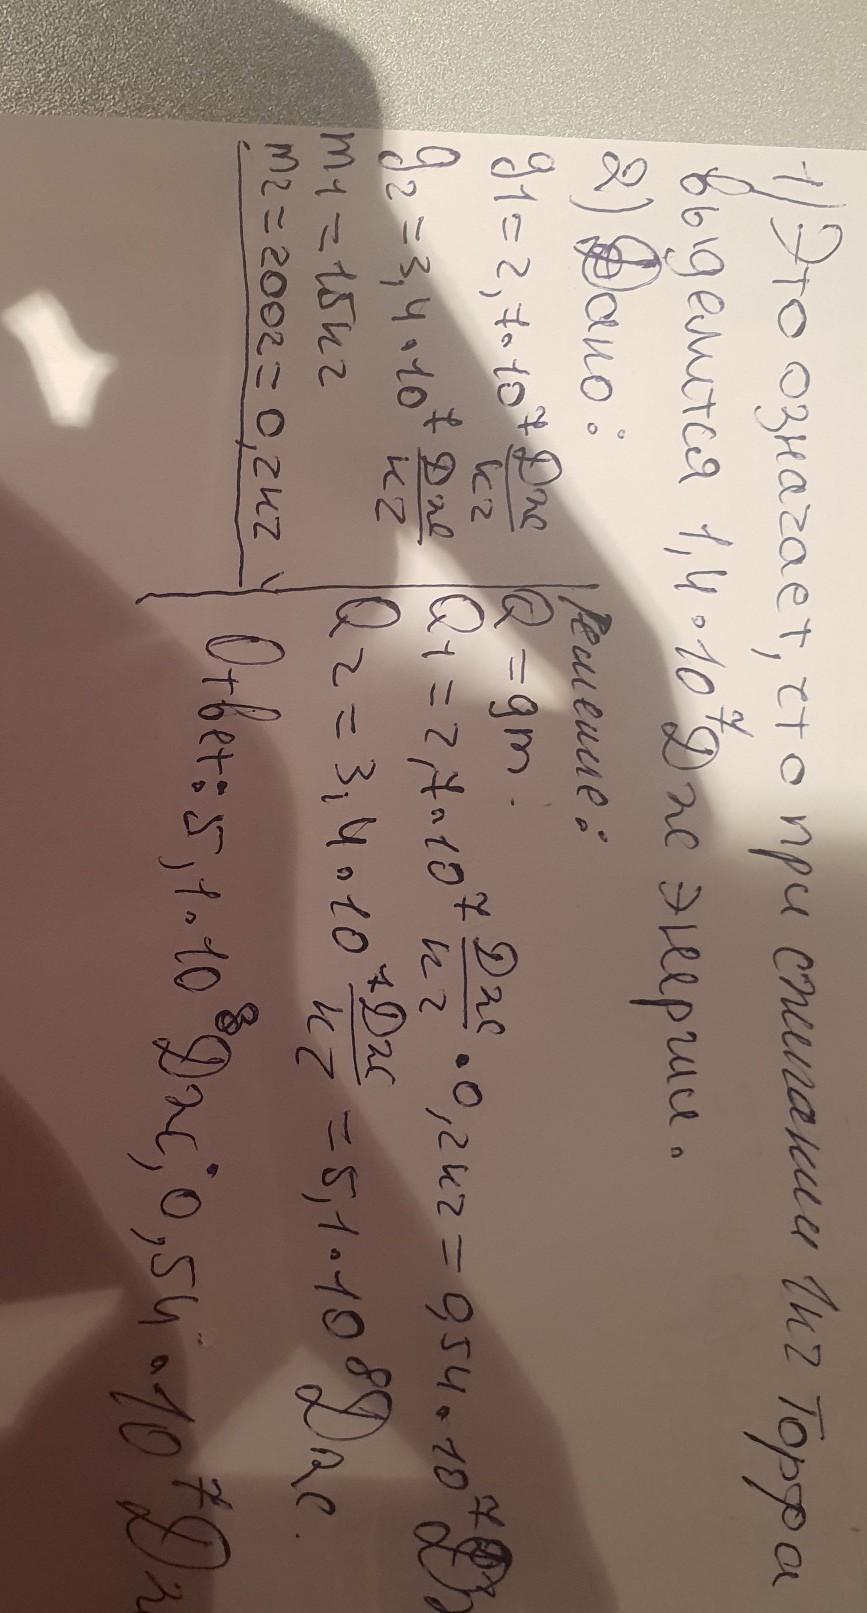 1) Это означает, что при сжигании 1кг торфа
выделится 1,4·10⁷ Дж энергии.
2) Дано:
g1 = 2,7·10⁷ Дж/кг
g2 = 3,4·10⁷ Дж/кг
m1 = 15кг
m2 = 200г = 0,2кг
Решение:
Q = gm.
Q1 = 2,7·10⁷ Дж/кг · 0,2кг = 0,54·10⁷ Дж
Q2 = 3,4·10⁷ Дж/кг = 5,1·10⁸ Дж.
Ответ: 5,1·10⁸ Дж; 0,54·10⁷ Дж